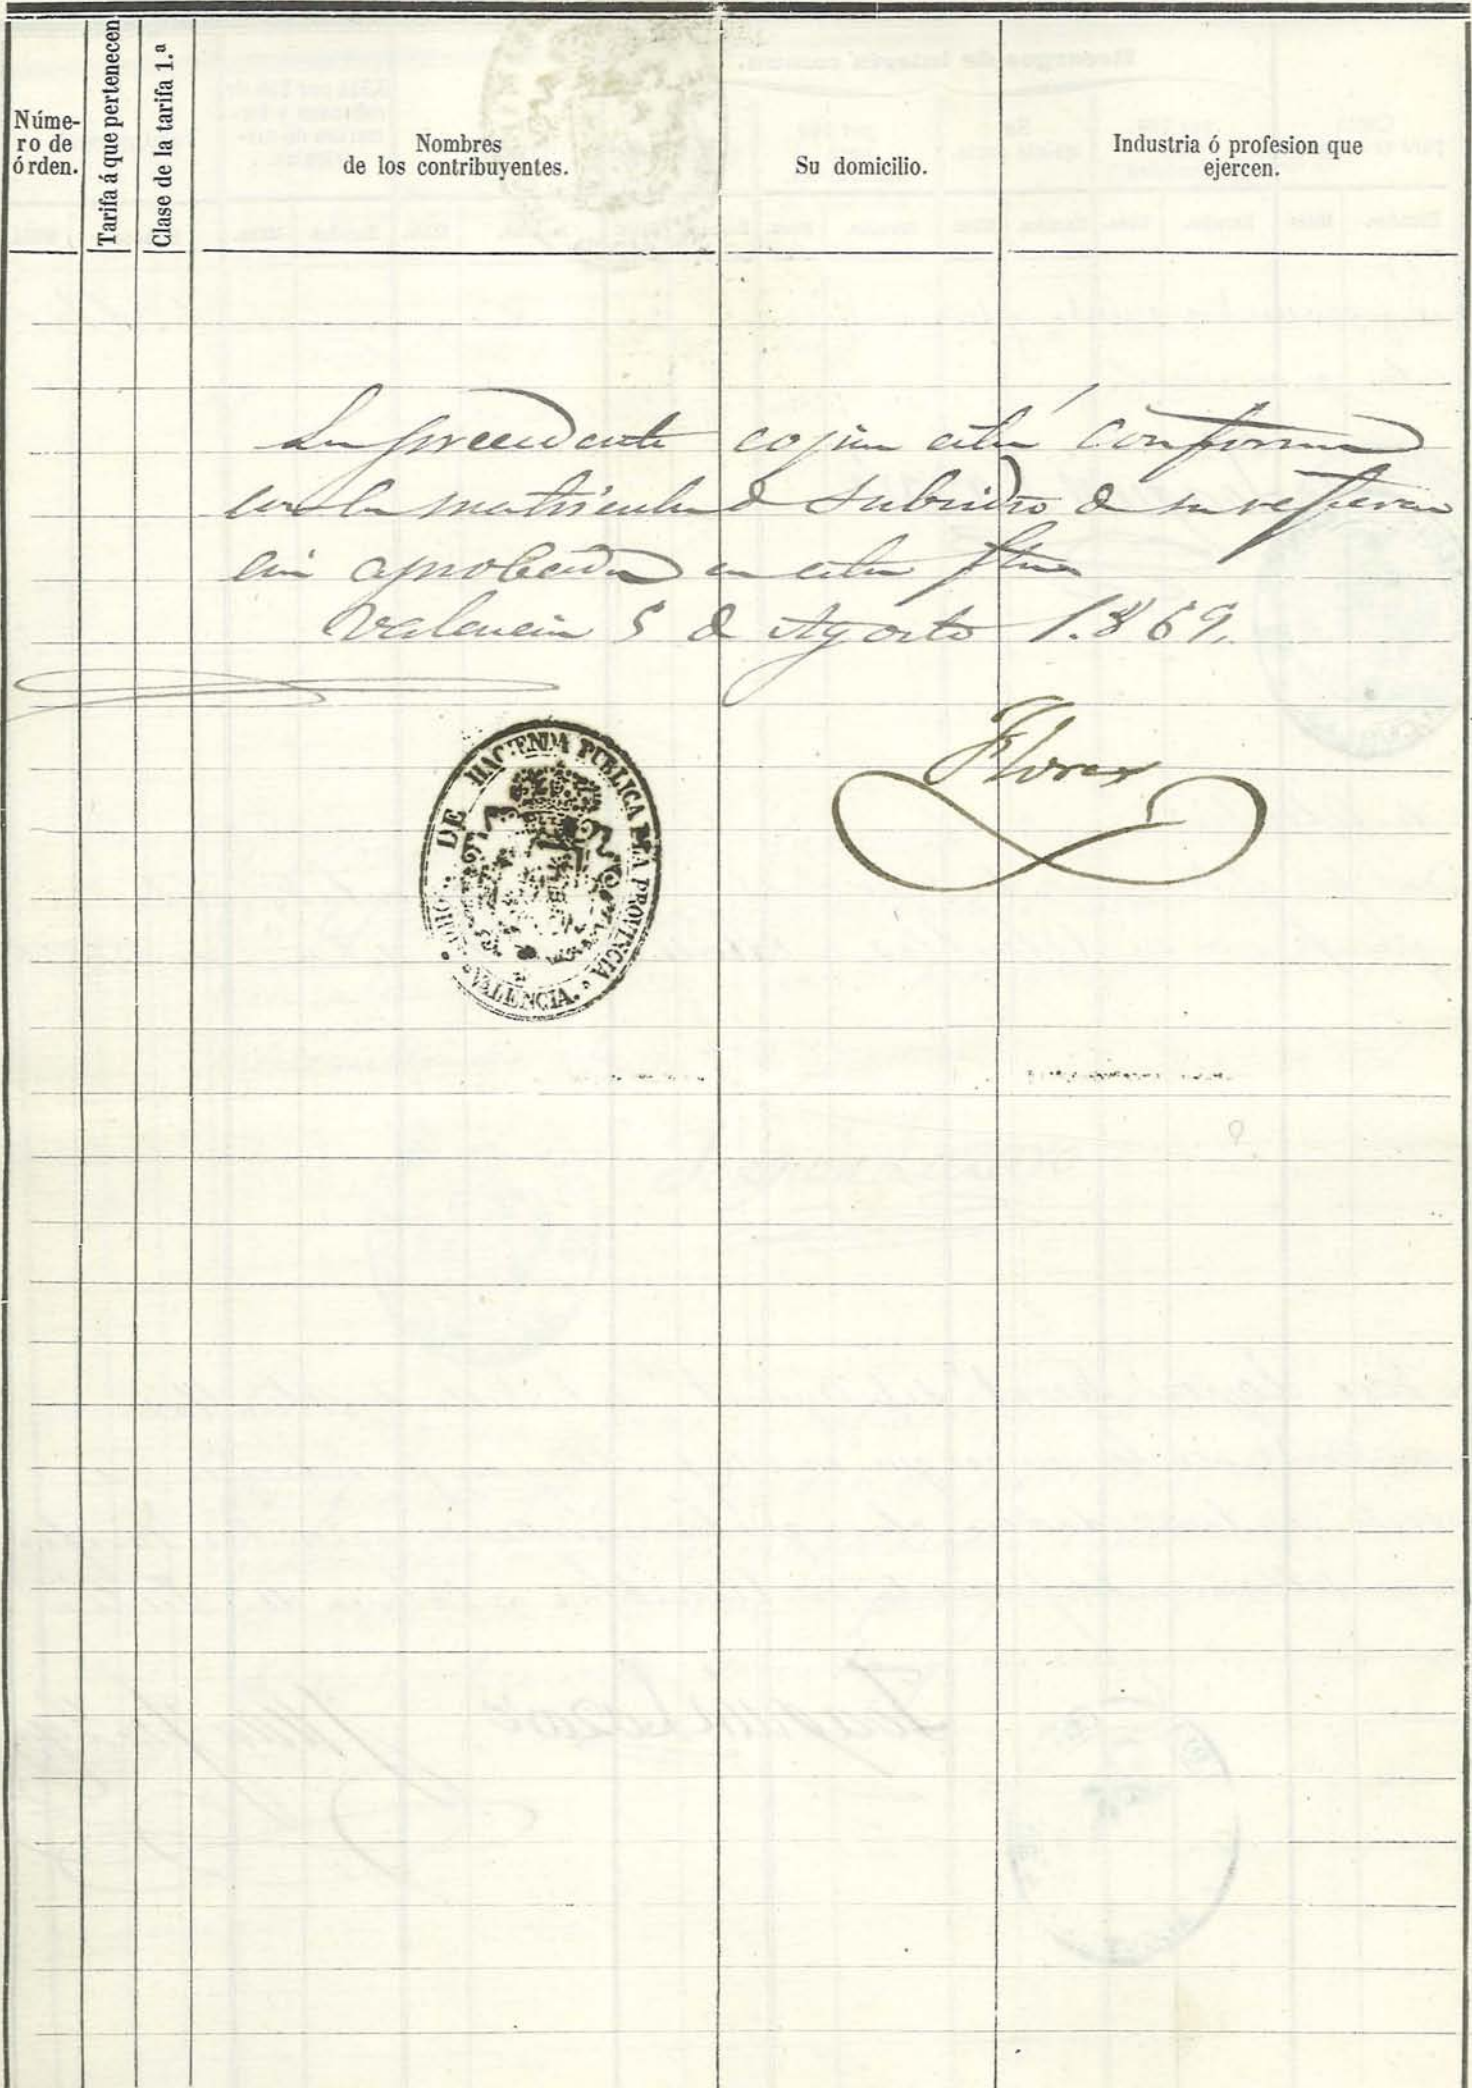 Núme-
ro de
órden.
Tarifa á que pertenecen
Clase de la tarifa 1.ª
Nombres
de los contribuyentes.
Su domicilio.
Industria ó profesion que
ejercen.
La precedente copia está conforme
con la matricula de subsidio de su referen
cia aprobada en esta fha
Valencia 5 de Agosto 1.869.
Flores
DE HACIENDA PUBLICA DE LA PROVINCIA
VALENCIA.